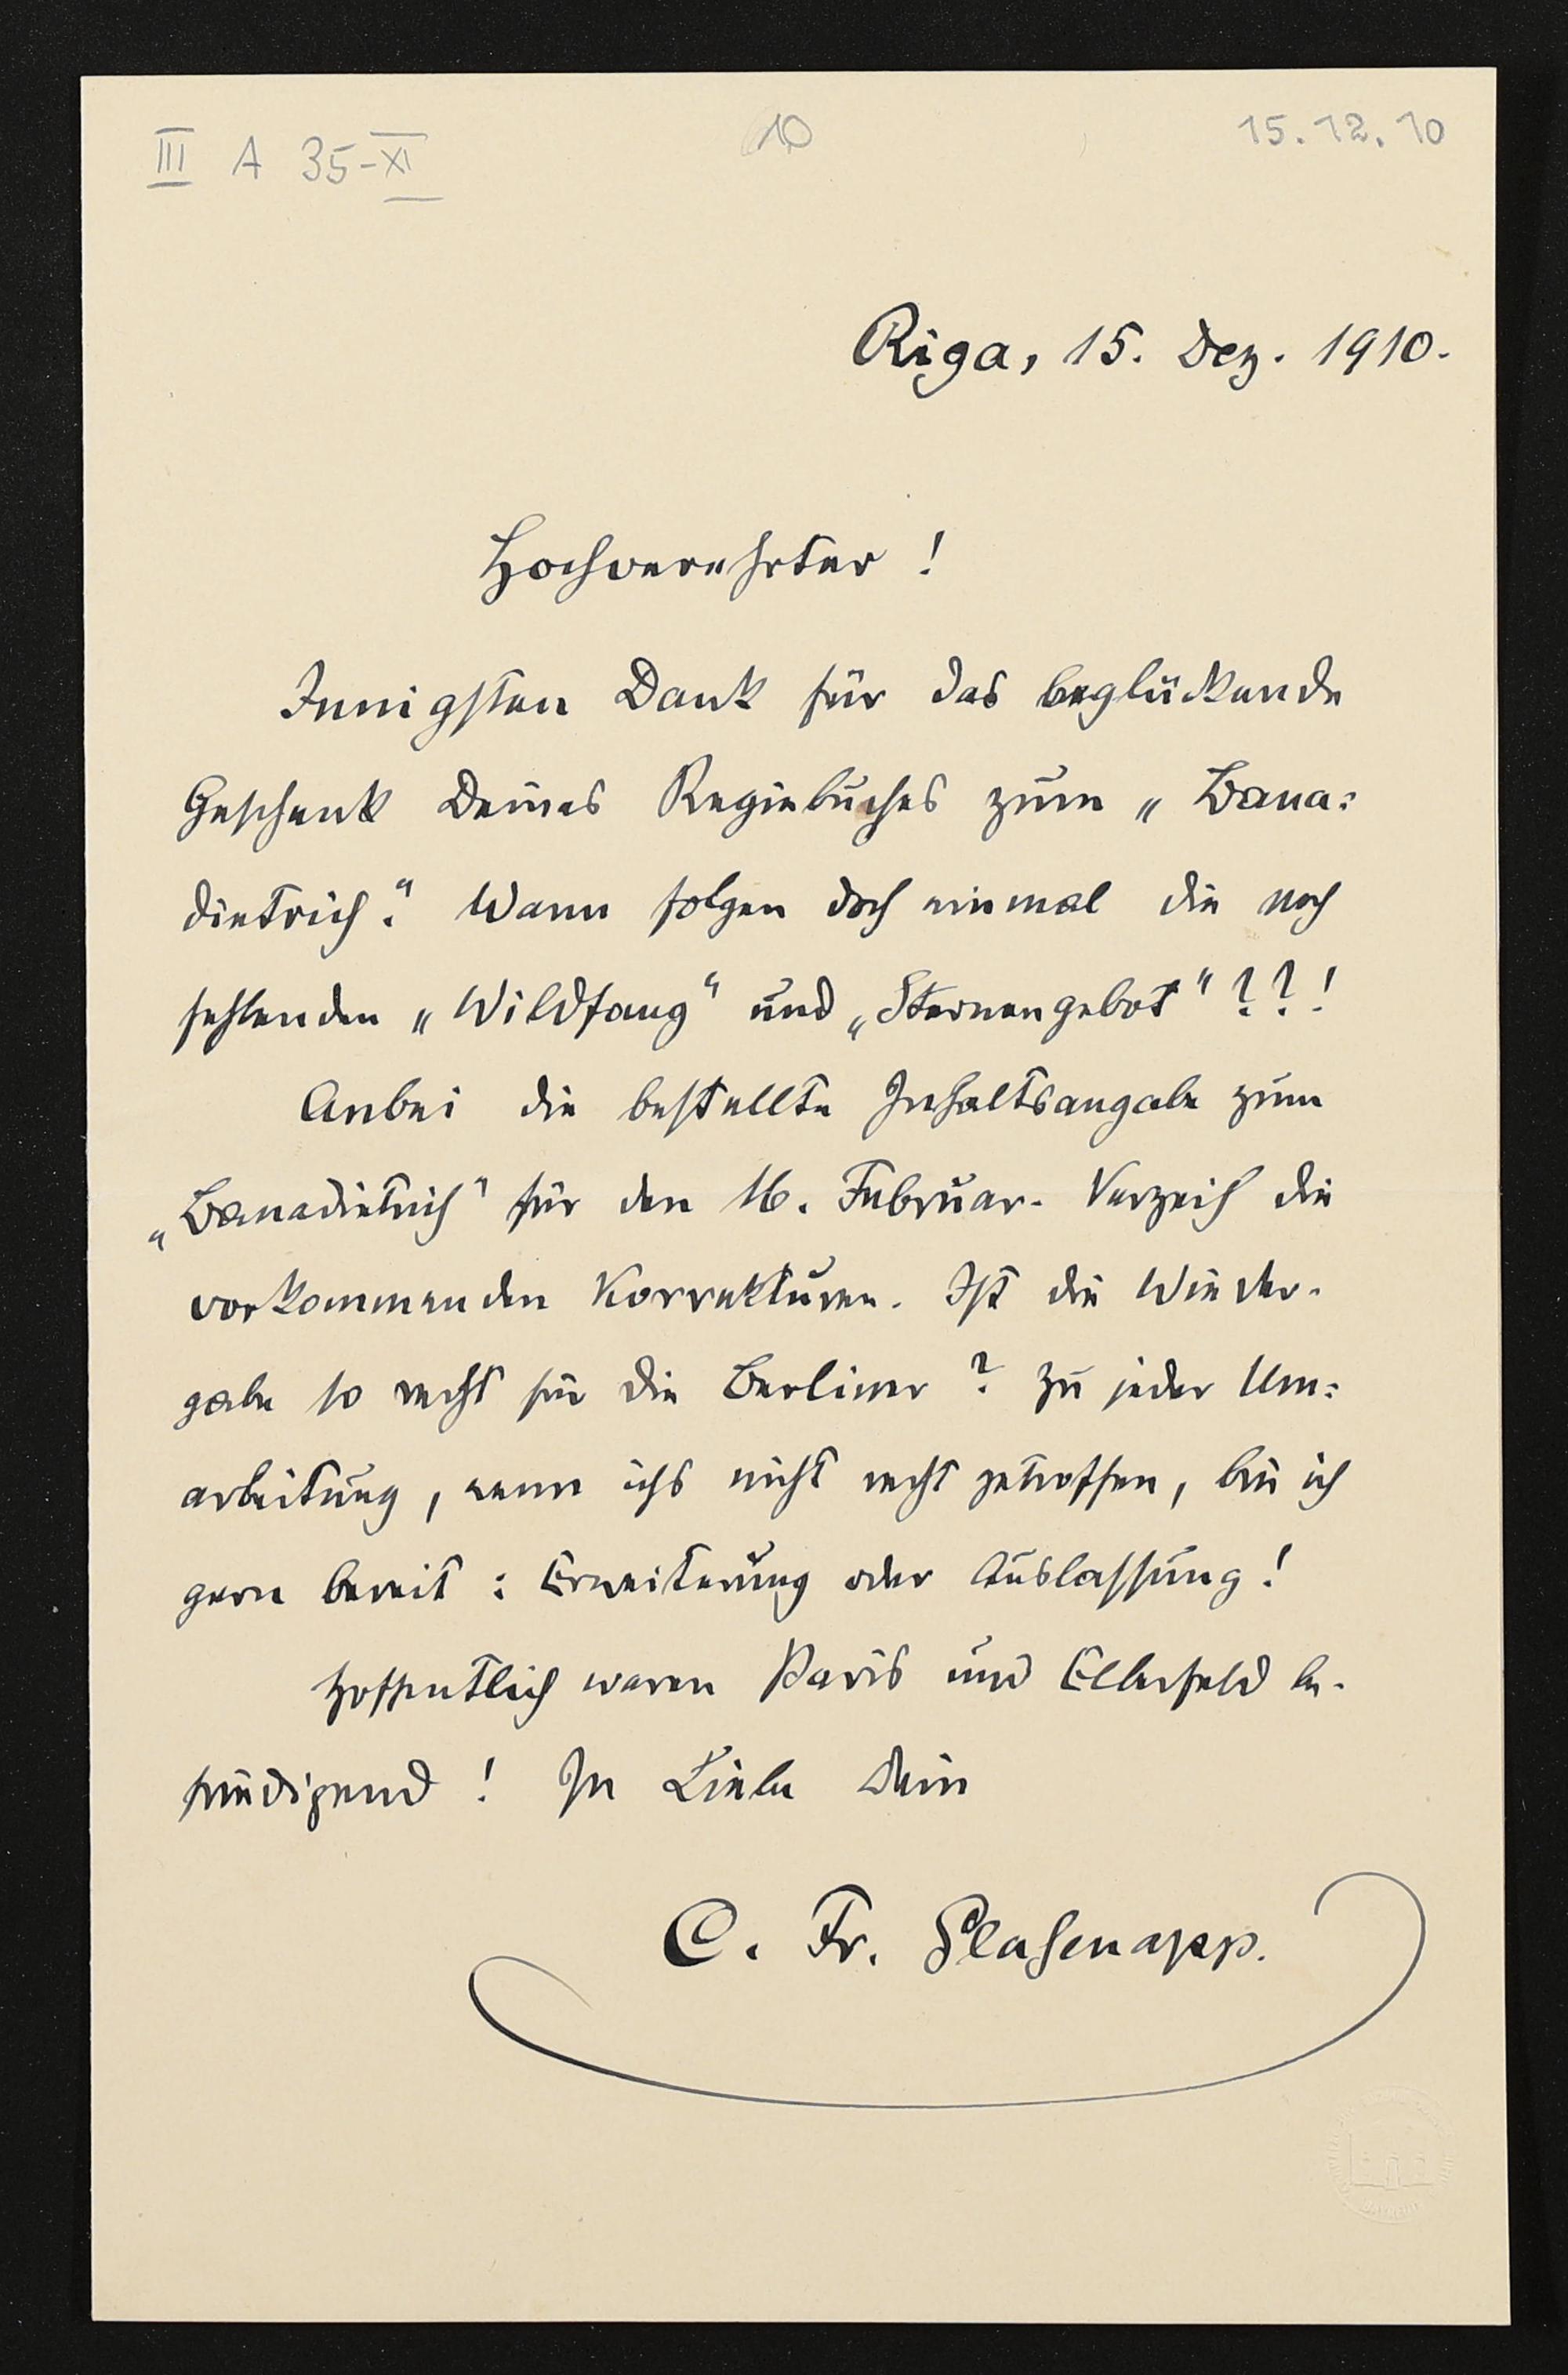 III A 35-XI
10
15.12.10
Riga, 15. Dez. 1910.
Hochverehrter!
Innigsten Dank für das beglückende
Geschenk Deines Regiebuches zum „Bana:
dietrich“. Wann folgen doch einmal die noch
fehlenden „Wildfang“ und „Sternengebot“??!
Anbei die bestellte Inhaltsangabe zum
„Banadietrich“ für den 16. Februar. Verzeih die
vorkommenden Korrekturen. Ist die Wieder-
gabe so recht für die Berliner? Zu jeder Um:
arbeitung, wenn ichs nicht recht getroffen, bin ich
gern bereit: Erweiterung oder Auslassung!
Hoffentlich waren Paris und Elberfeld be-
friedigend! In Liebe Dein
C. Fr. Glasenapp.